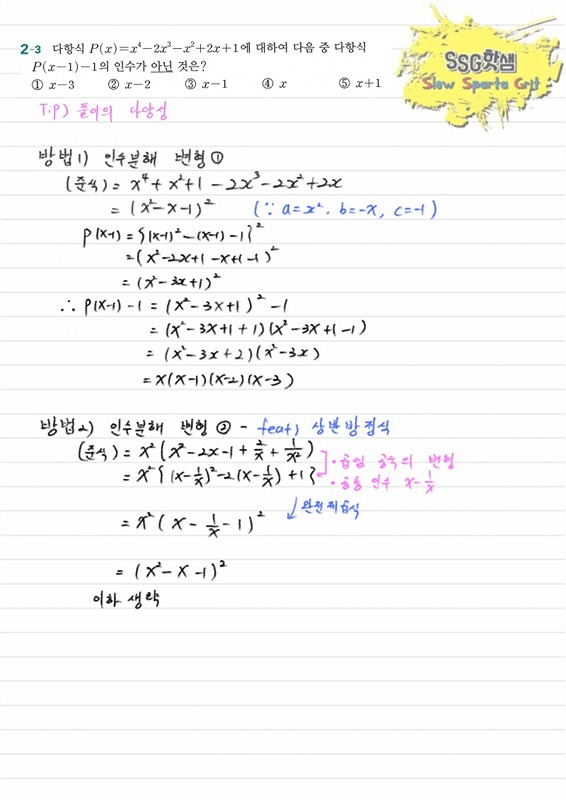 2-3 다항식 P(x)=x⁴-2x³-x²+2x+1에 대하여 다음 중 다항식
P(x-1)-1의 인수가 아닌 것은?
① x-3 ② x-2 ③ x-1 ④ x ⑤ x+1
SSG학샘
Slow Sparta Grit
TiP) 풀이의 다양성
방법1) 인수분해 변형①
(준식) = x⁴+x²+1-2x³-2x²+2x
= (x²-x-1)² (∵ a=x², b=-x, c=-1)
P(x-1) = {(x-1)²-(x-1)-1}²
= (x²-2x+1-x+1-1)²
= (x²-3x+1)²
∴ P(x-1)-1 = (x²-3x+1)²-1
= (x²-3x+1+1)(x²-3x+1-1)
= (x²-3x+2)(x²-3x)
= x(x-1)(x-2)(x-3)
방법2) 인수분해 변형② - feat) 상반방정식
(준식) = x²(x²-2x-1+2/x+1/x²)
·곱셈 공식의 변형
= x²{(x-1/x)²-2(x-1/x)+1}
·공통 인수 x-1/x
완전제곱식
= x²(x-1/x-1)²
= (x²-x-1)²
이하 생략